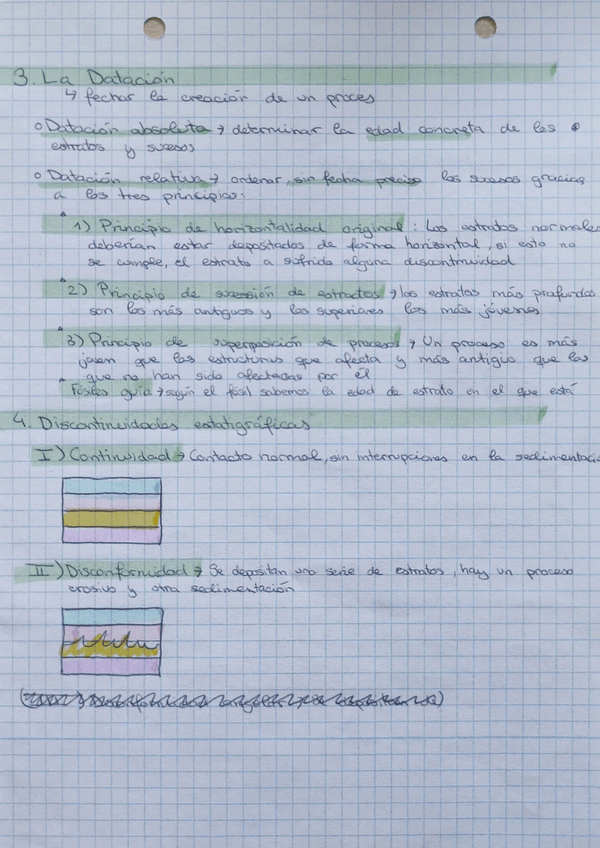 3. La Datación
↳ fechar la creación de un proces
o Datación absoluta → determinar la edad concreta de los
estratos y sucesos
o Datación relativa → ordenar, sin fecha precisa los sucesos gracias
a los tres principios:
1) Principio de horizontalidad original: Los estratos normales
deberían estar depositados de forma horizontal, si esto no
se cumple, el estrato a sufrido alguna discontinuidad
2) Principio de sucesión de estractos → los estratos más profundos
son los más antiguos y los superiores los más jóvenes
3) Principio de superposición de procesos → Un proceso es más
joven que las estructuras que afecta y más antiguo que las
que no han sido afectadas por él
Fósiles guía → según el fósil sabemos la edad de estrato en el que está
4. Discontinuidades estatigráficas
I) Continuidad → Contacto normal, sin interrupciones en la sedimentació
II) Disconformidad → Se depositan una serie de estratos, hay un proceso
erosivo y otra sedimentación